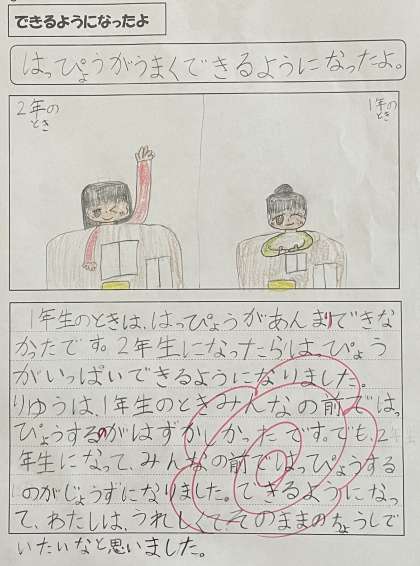 できるようになったよ
はっぴょうがうまくできるようになったよ。
2年の
とき
1年の
とき
1年生のときは、はっぴょうがあんまりできな
かったです。2年生になったらはっぴょう
がいっぱいできるようになりました。
りゆうは、1年生のときみんなの前ではっ
ぴょうするのがはずかしかったです。でも、2
年生になって、みんなの前ではっぴょうする
のがじょうずになりました。できるようになっ
て、わたしは、うれしくてそのままのちょうしで
いたいなと思いました。